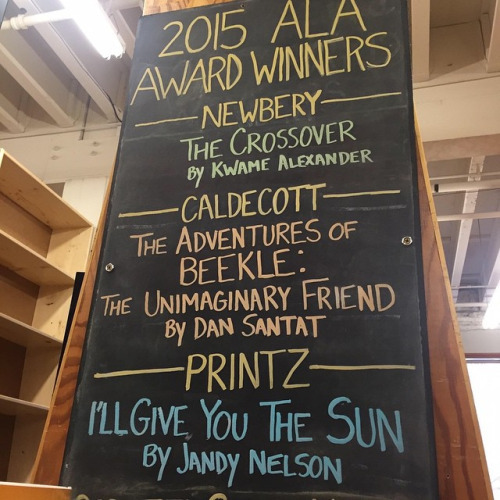 2015 ALA
AWARD WINNERS
NEWBERY
THE CROSSOVER
BY KWAME ALEXANDER
CALDECOTT
THE ADVENTURES OF
BEEKLE:
THE UNIMAGINARY FRIEND
BY DAN SANTAT
PRINTZ
I'LL GIVE YOU THE SUN
BY JANDY NELSON